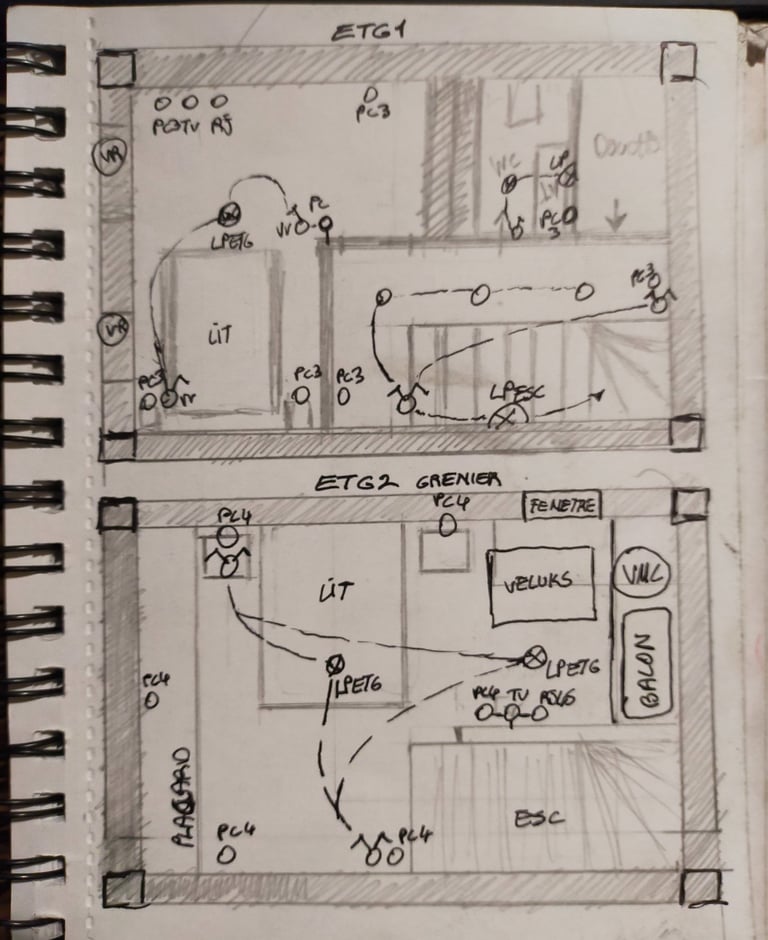 ETG1
PC3 TV RJ
PC3
VR
WC
LP
Douche
LV
PC
3
LPETG
VV
PC
VR
LIT
PC3
PC3
PC3
PC3
VV
LPESC
ETG2 GRENIER
PC4
PC4
FENETRE
LIT
VELUKS
VMC
BALON
LPETG
LPETG
PC4
PC4 TV RJ45
PLACARD
PC4
PC4
ESC